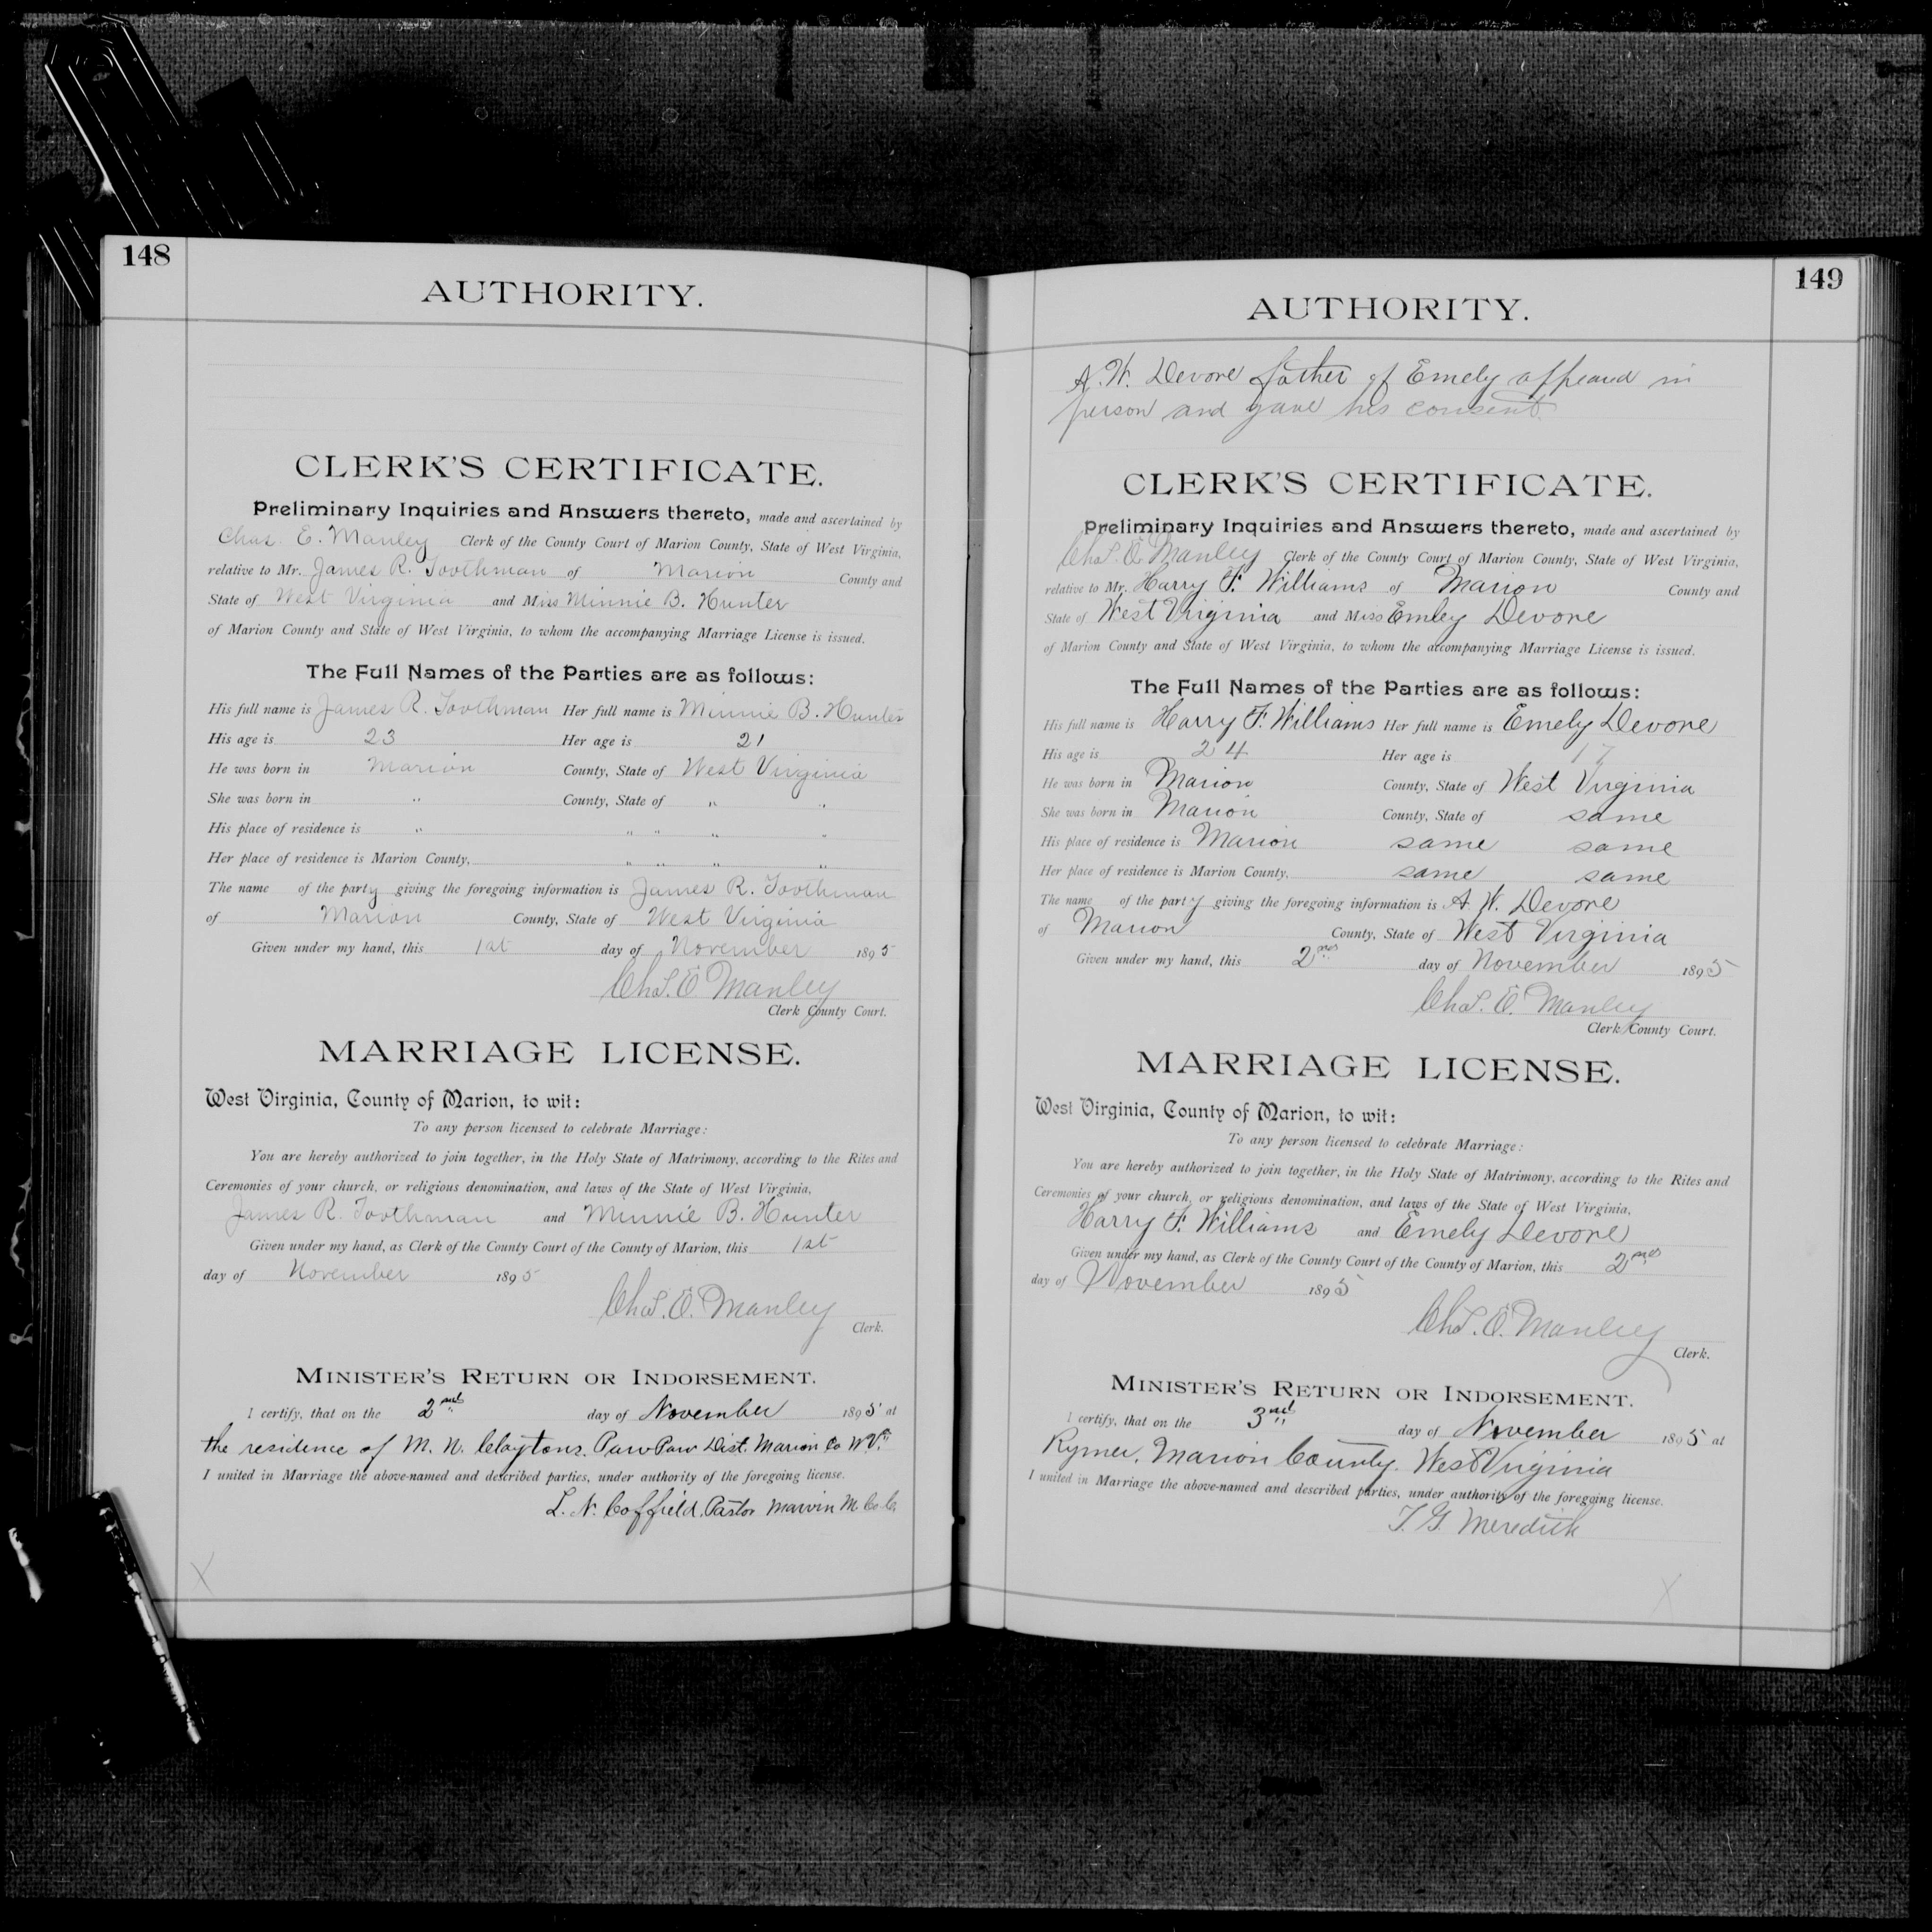 148
AUTHORITY.
CLERK'S CERTIFICATE.
Preliminary Inquiries and Answers thereto, made and ascertained by
Chas. E. Manley Clerk of the County Court of Marion County, State of West Virginia,
relative to Mr. James R. Toothman of Marion County and
State of West Virginia and Miss Minnie B. Hunter
of Marion County and State of West Virginia, to whom the accompanying Marriage License is issued.
The Full Names of the Parties are as follows:
His full name is James R. Toothman Her full name is Minnie B. Hunter
His age is 23 Her age is 21
He was born in Marion County, State of West Virginia
She was born in " County, State of " "
His place of residence is " " " " "
Her place of residence is Marion County, " " " "
The name of the party giving the foregoing information is James R. Toothman
of Marion County, State of West Virginia
Given under my hand, this 1st day of November 1895
Chas. E. Manley
Clerk County Court.
MARRIAGE LICENSE.
West Virginia, County of Marion, to wit:
To any person licensed to celebrate Marriage:
You are hereby authorized to join together, in the Holy State of Matrimony, according to the Rites and
Ceremonies of your church, or religious denomination, and laws of the State of West Virginia,
James R. Toothman and Minnie B. Hunter
Given under my hand, as Clerk of the County Court of the County of Marion, this 1st
day of November 1895
Chas. E. Manley
Clerk.
MINISTER'S RETURN OR INDORSEMENT.
I certify, that on the 2nd day of November 1895 at
the residence of M. N. Claytons. Paw Paw Dist. Marion Co W.Va.
I united in Marriage the above-named and described parties, under authority of the foregoing license.
L. N. Coffield, Pastor Marvin M.
X
149
AUTHORITY.
A. W. Devore father of Emely appeard in
person and gave his consent
CLERK'S CERTIFICATE.
Preliminary Inquiries and Answers thereto, made and ascertained by
Chas. E. Manley Clerk of the County Court of Marion County, State of West Virginia,
relative to Mr. Harry F. Williams of Marion County and
State of West Virginia and Miss Emley Devore
of Marion County and State of West Virginia, to whom the accompanying Marriage License is issued.
The Full Names of the Parties are as follows:
His full name is Harry F. Williams Her full name is Emely Devore
His age is 24 Her age is 17
He was born in Marion County, State of West Virginia
She was born in Marion County, State of same
His place of residence is Marion same same
Her place of residence is Marion County, same same
The name of the party giving the foregoing information is A. W. Devore
of Marion County, State of West Virginia
Given under my hand, this 2nd day of November 1895
Chas. E. Manley
Clerk County Court.
MARRIAGE LICENSE.
West Virginia, County of Marion, to wit:
To any person licensed to celebrate Marriage:
You are hereby authorized to join together, in the Holy State of Matrimony, according to the Rites and
Ceremonies of your church, or religious denomination, and laws of the State of West Virginia,
Harry F. Williams and Emely Devore
Given under my hand, as Clerk of the County Court of the County of Marion, this 2nd
day of November 1895
Chas. E. Manley
Clerk.
MINISTER'S RETURN OR INDORSEMENT.
I certify, that on the 3rd day of November 1895 at
Rymer, Marion County. West Virginia
I united in Marriage the above-named and described parties, under authority of the foregoing license.
T. G. Meredith
X